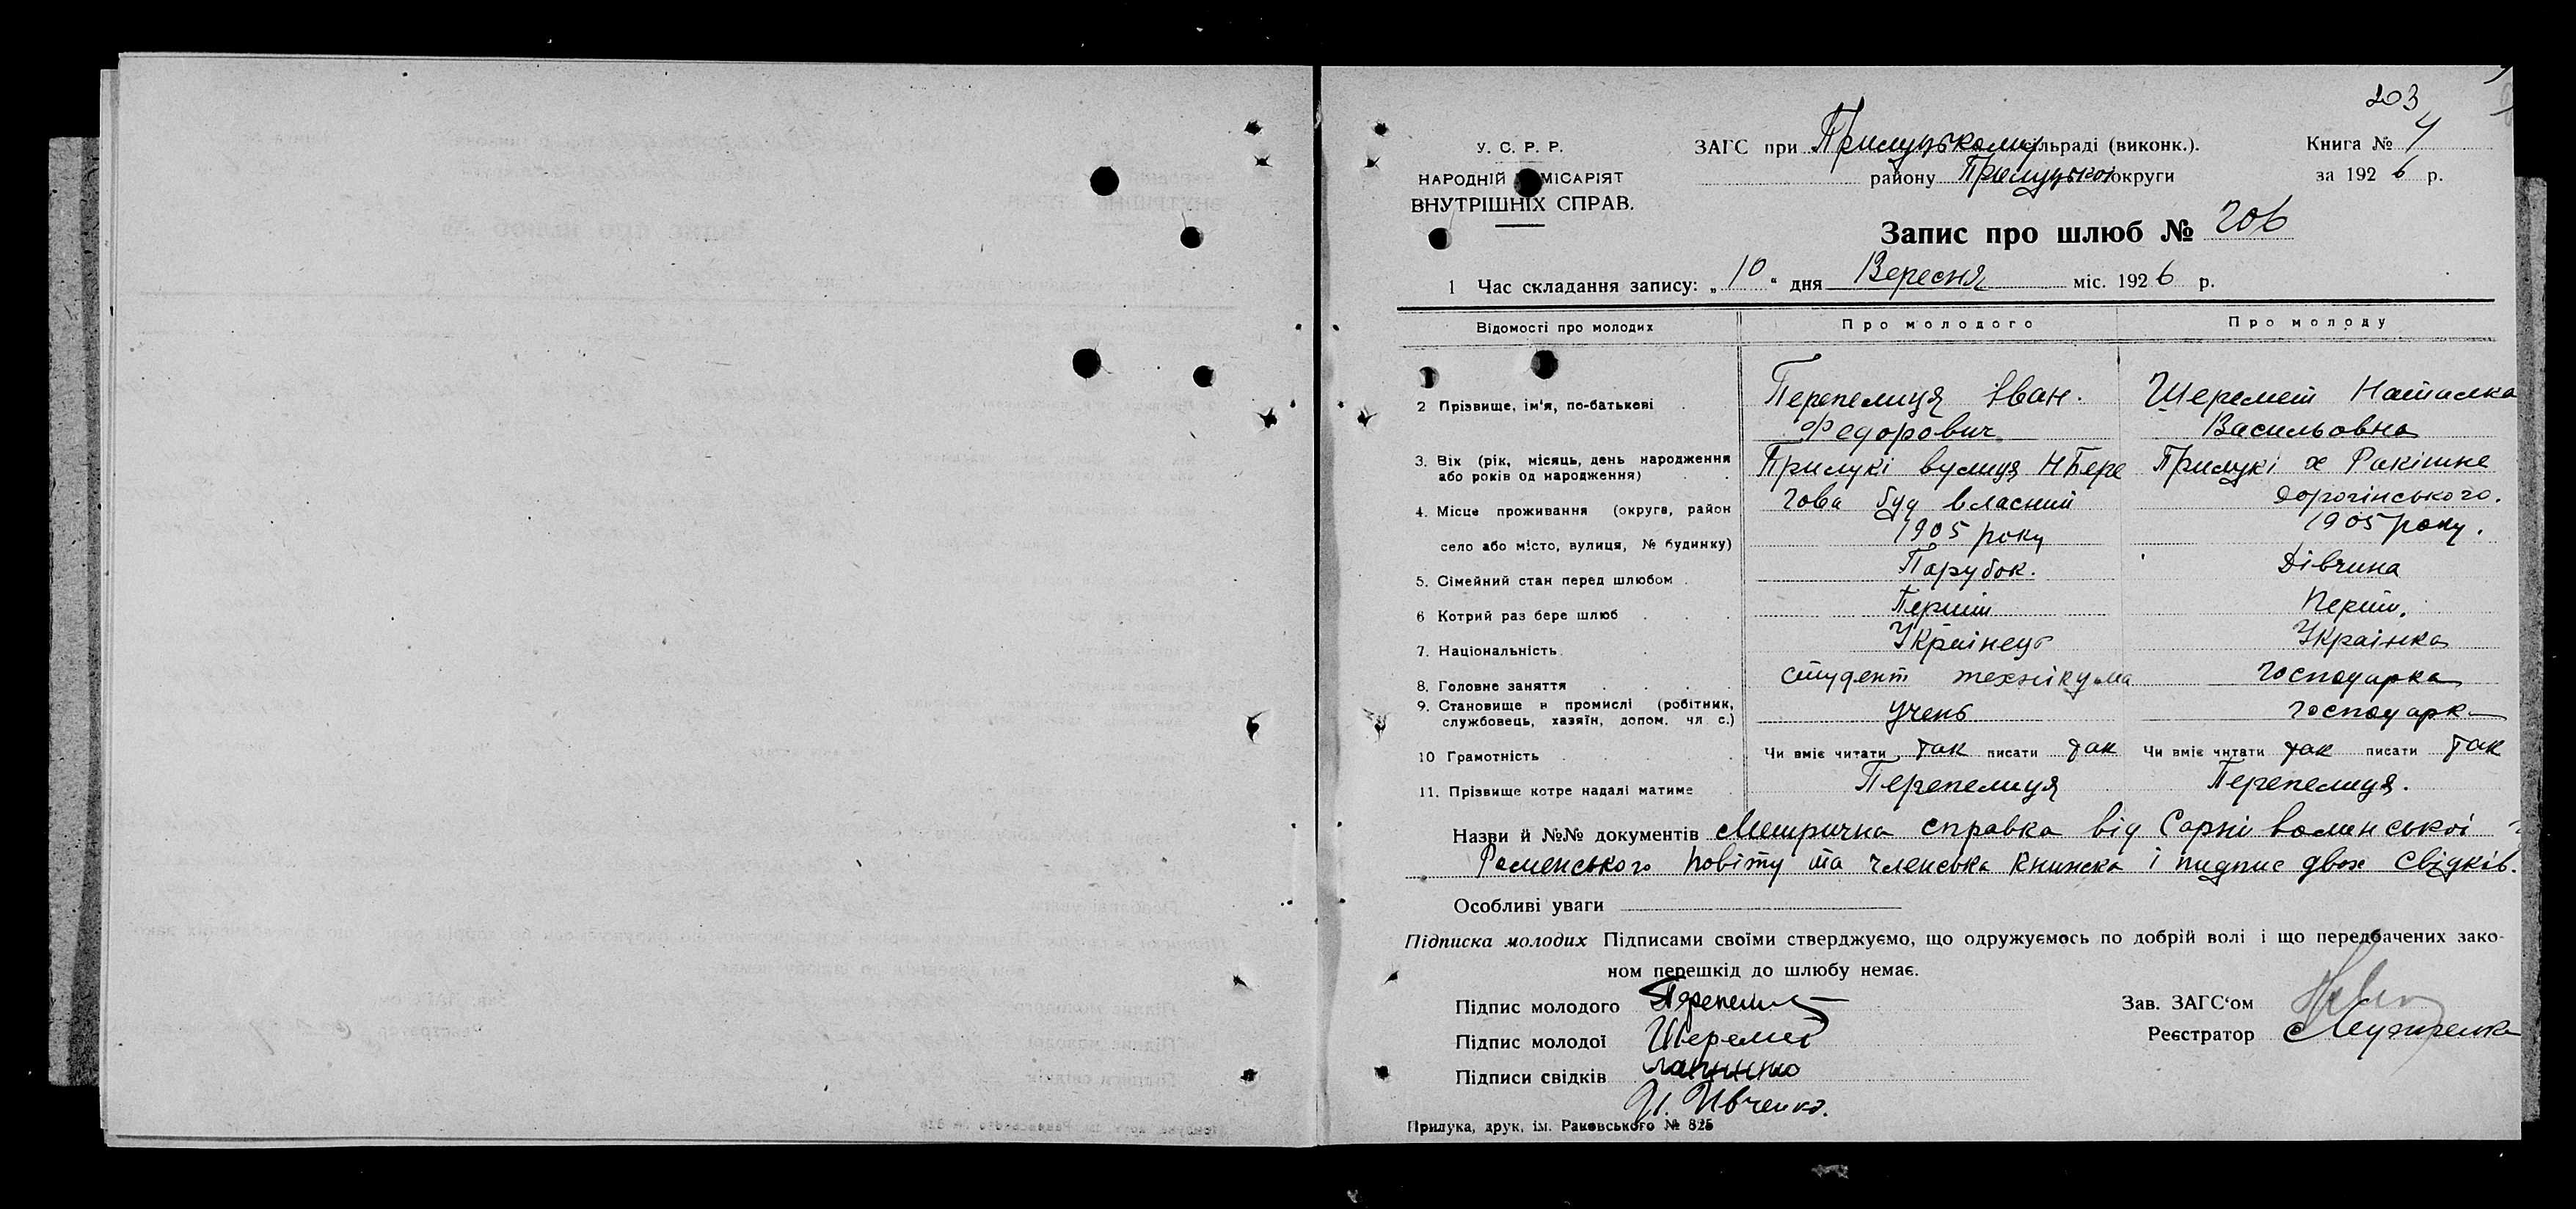 203
У. С. Р. Р.
НАРОДНІЙ КОМІСАРІЯТ
ВНУТРІШНІХ СПРАВ.
ЗАГС при Прилуцькому сільраді (виконк.).
району Прилуцької округи
Книга № 4
за 1926 р.
Запис про шлюб № 206
1 Час складання запису: „10“ дня Вересня міс. 1926 р.
Відомості про молодих Про молодого Про молоду
2 Прізвище, ім'я, по-батькові Перепелиця Іван. Шеремет Наталка
Федорович Васильовна
3. Вік (рік, місяць, день народження або років од народження) Прилукі вулиця НБере Прилукі х Ракітне
4. Місце проживання (округа, район гова буд власний Дорогінського.
село або місто, вулиця, № будинку) 1905 року 1905 року.
5. Сімейний стан перед шлюбом Парубок. Дівчина
6 Котрий раз бере шлюб Перший Перш.
7. Національність Українець Українка
8. Головне заняття студент технікума господарка
9. Становище в промислі (робітник, службовець, хазяїн, допом. чл с.) Учень господарк
10 Грамотність Чи вміє читати так писати так Чи вміє читати так писати так
11. Прізвище котре надалі матиме Перепелиця Перепелиця.
Назви й №№ документів Метрична справка від
Роменського повіту та членська книжка і пидпис двох свідків.
Особливі уваги
Підписка молодих Підписами своїми стверджуємо, що одружуємось по добрій волі і що передбачених зако-
ном перешкід до шлюбу немає.
Підпис молодого Перепелиця
Зав. ЗАГС‘ом
Підпис молодої Шеремет
Реєстратор
Підписи свідків
И. Ивченко.
Прилука, друк. ім. Раковського № 825